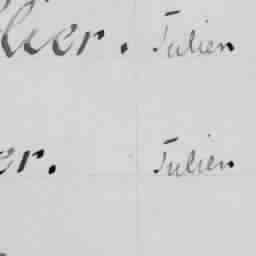 llier. Julien
er. Julien